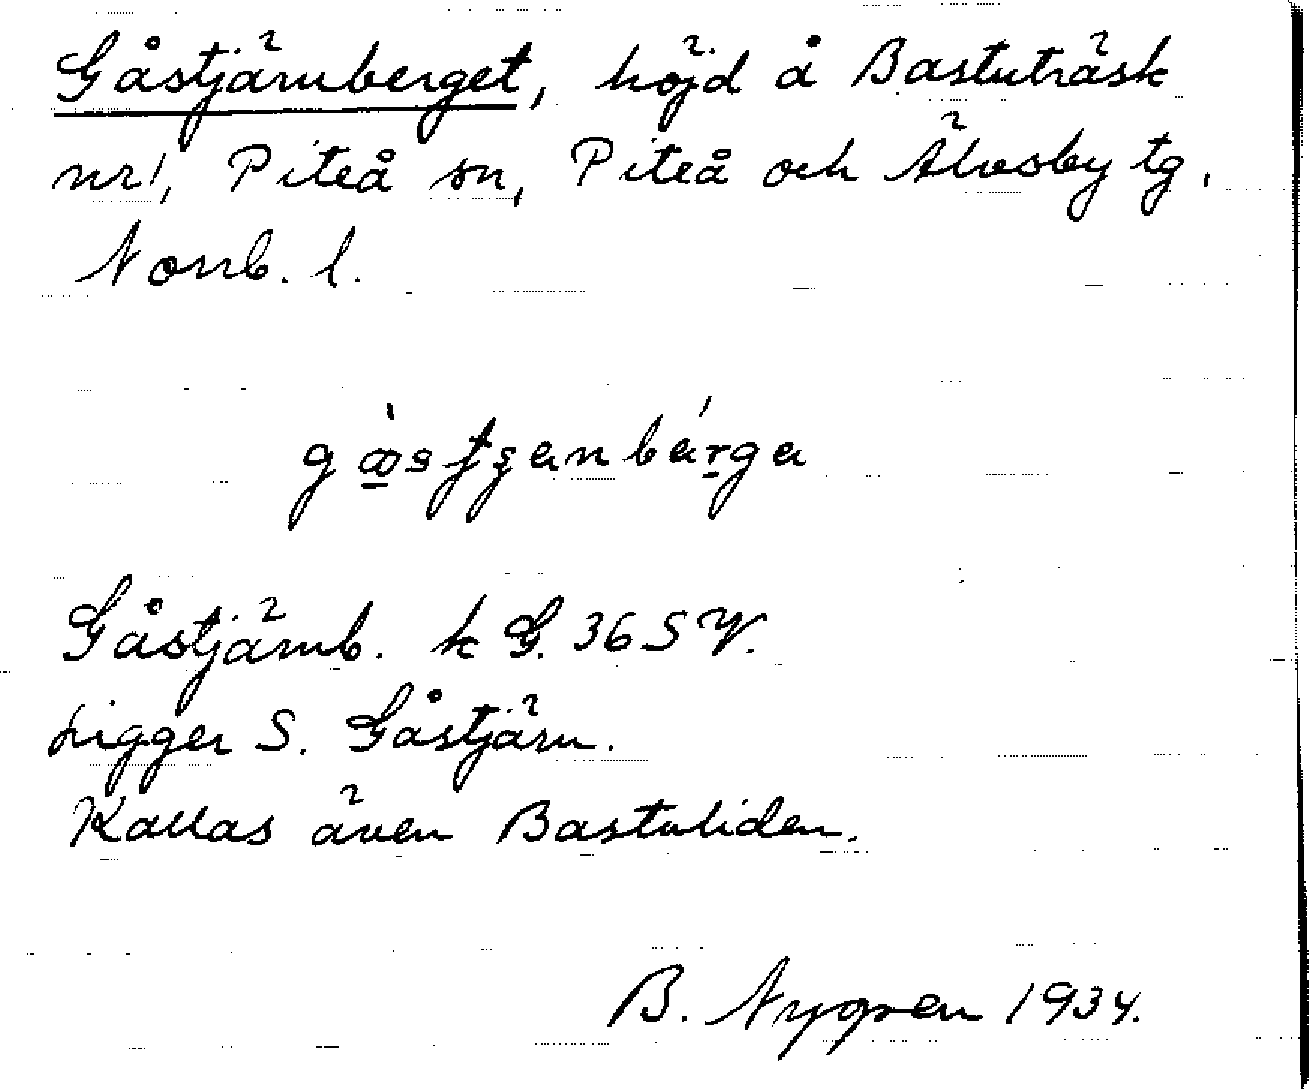 Gåstjärnberget, höjd å Bastuträsk
nr 1, Piteå sn, Piteå och Älvsby tg.
Norrb. l.
Gåstjärnb. k G. 36 SV.
Ligger S. Gåstjärn.
Kallas även Bastuliden.
B. Nygren 1934.